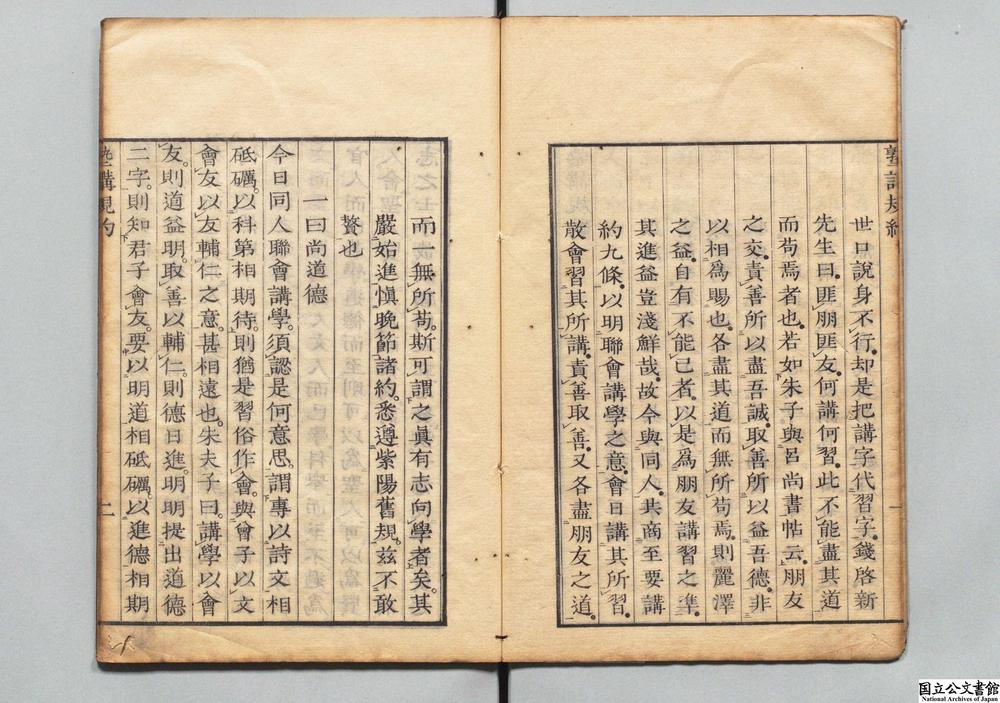 塾講規約
世口說身不行却是把講字代習字錢啓新
先生曰匪朋匪友何講何習此不能盡其道
而苟焉者也若如朱子與呂尚書帖云朋友
之交責善所以盡吾誠取善所以益吾德非
以相爲賜也各盡其道而無所苟焉則麗澤
之益自有不能已者以是爲朋友講習之準
其進益豈淺鮮哉故今與同人共商至要講
約九條以明聯會講學之意會日講其所習
散會習其所講責善取善又各盡朋友之道
一
而一無所苟斯可謂之眞有志向學者矣其
嚴始進愼晚節諸約悉遵紫陽舊規茲不敢
贅也
一曰尚道德
今日同人聯會講學須認是何意思謂專以詩文相
砥礪以科第相期待則猶是習俗作會與曾子以文
會友以友輔仁之意甚相遠也朱夫子曰講學以會
友則道益明取善以輔仁則德日進明明提出道德
二字則知君子會友要以明道相砥礪以進德相期
塾講規約
二
国立公文書館
National Archives of Japan